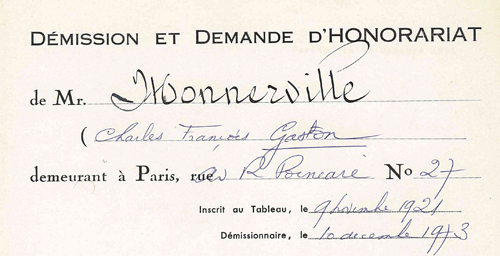 DÉMISSION ET DEMANDE D'HONORARIAT
de Mr. Monnerville
( Charles François Gaston
demeurant à Paris, rue av R Poincaré No 27
Inscrit au Tableau, le 9 novembre 1921
Démissionnaire, le 10 decembre 1973